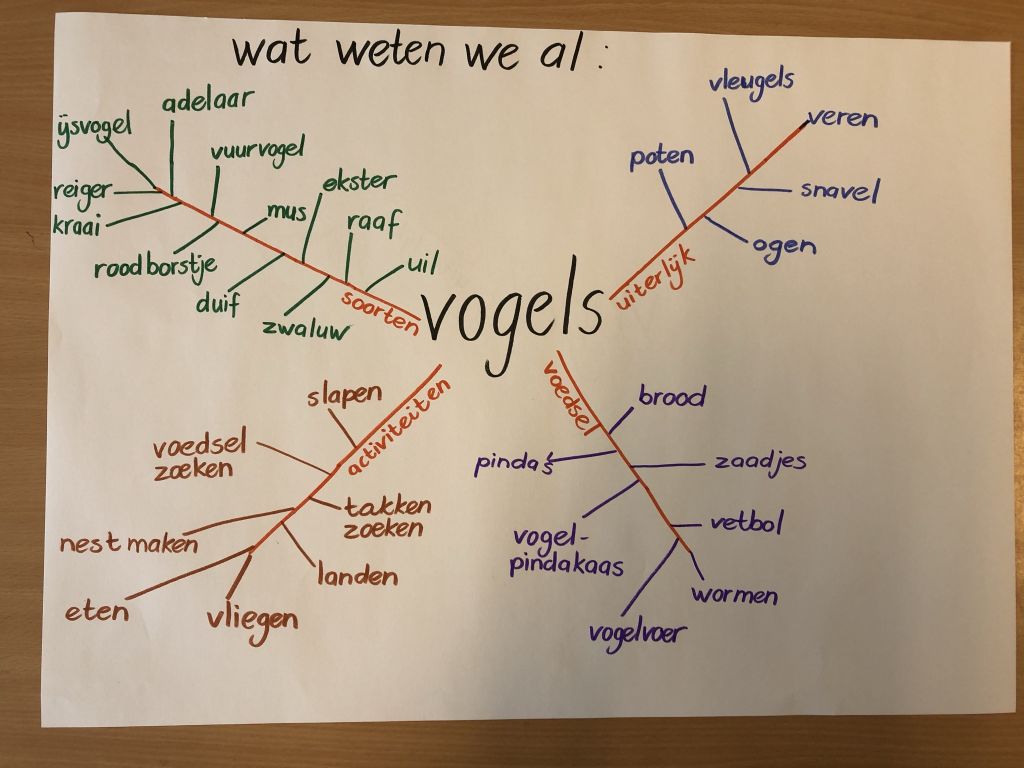 wat weten we al :
vogels
soorten
ijsvogel
adelaar
vuurvogel
reiger
kraai
roodborstje
mus
ekster
raaf
duif
zwaluw
uil
uiterlijk
vleugels
veren
poten
snavel
ogen
activiteiten
slapen
voedsel
zoeken
takken
zoeken
nest maken
landen
eten
vliegen
voedsel
brood
pinda's
zaadjes
vogel-
pindakaas
vetbol
wormen
vogelvoer